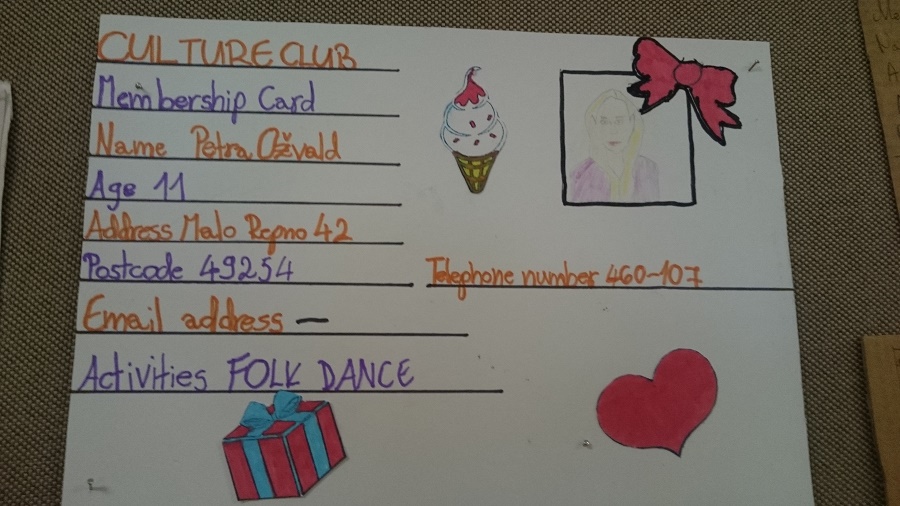 CULTURE CLUB
Membership Card
Name Petra Ožvald
Age 11
Address Malo Repno 42
Postcode 49254
Telephone number 460-107
Email address —
Activities FOLK DANCE